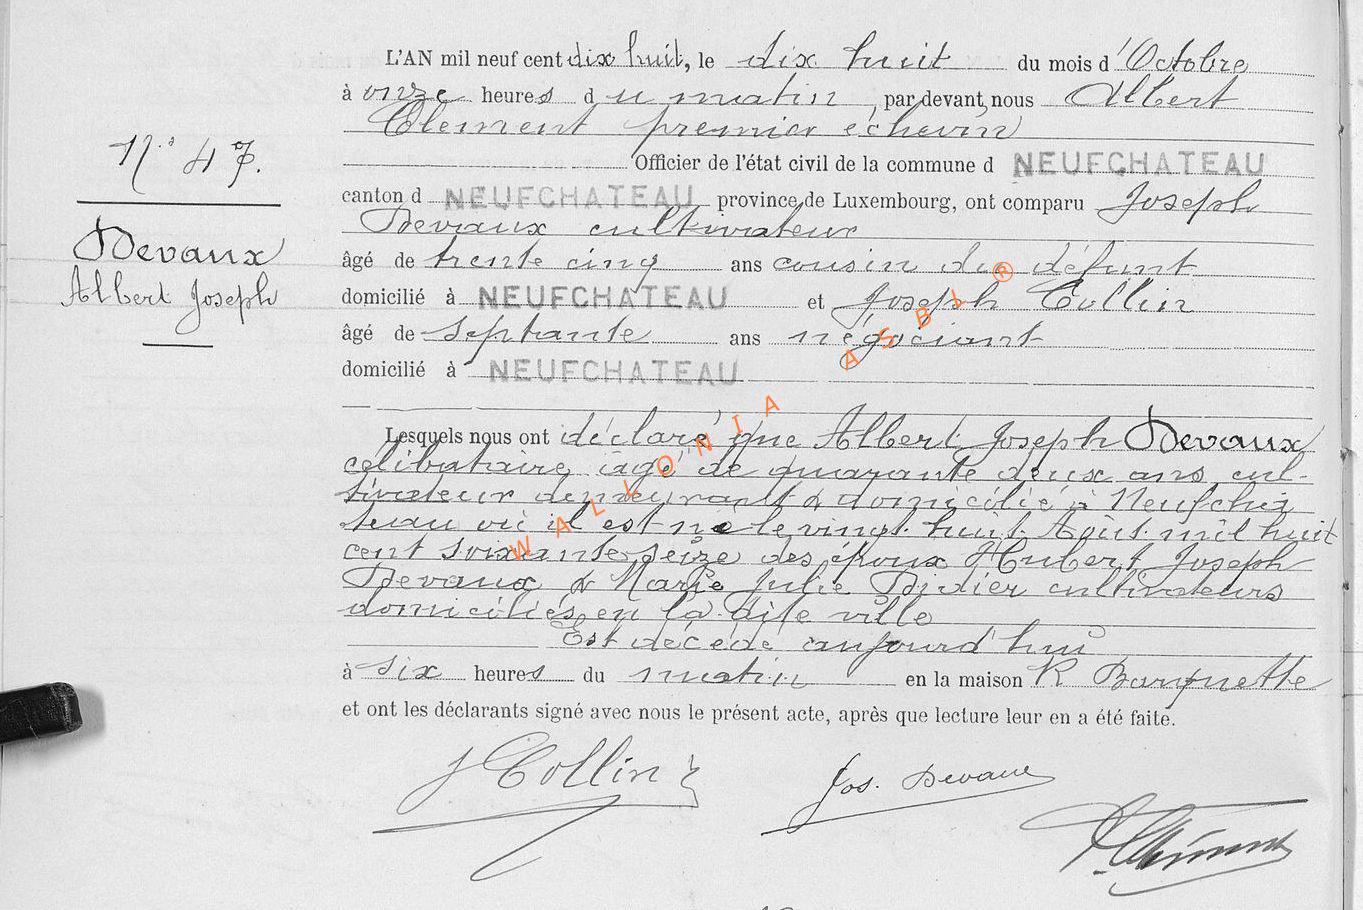 L'AN mil neuf cent dix huit, le dix huit du mois d'Octobre
à onze heures du matin, par devant nous Albert
Clement premier échevin
Officier de l'état civil de la commune d NEUFCHATEAU
N° 47.
canton d NEUFCHATEAU province de Luxembourg, ont comparu Joseph
Devaux cultivateur
Devaux
Albert Joseph
âgé de trente cinq ans cousin du défunt
domicilié à NEUFCHATEAU et Joseph Collin
âgé de septante ans négociant
domicilié à NEUFCHATEAU
Lesquels nous ont déclaré que Albert Joseph Devaux
célibataire, âgé de quarante deux ans, cul-
tivateur demeurant & domicilié à Neufchâ
teau où il est né le vingt huit Août mil huit
cent soixante seize des époux Hubert Joseph
Devaux & Marie Julie Didier cultivateurs
domiciliés en la dite ville
Est décédé aujourd'hui
à six heures du matin en la maison R Barquette
et ont les déclarants signé avec nous le présent acte, après que lecture leur en a été faite.
J Collin Jos. Devaux
A Clément
WALLONIA ASBL ®